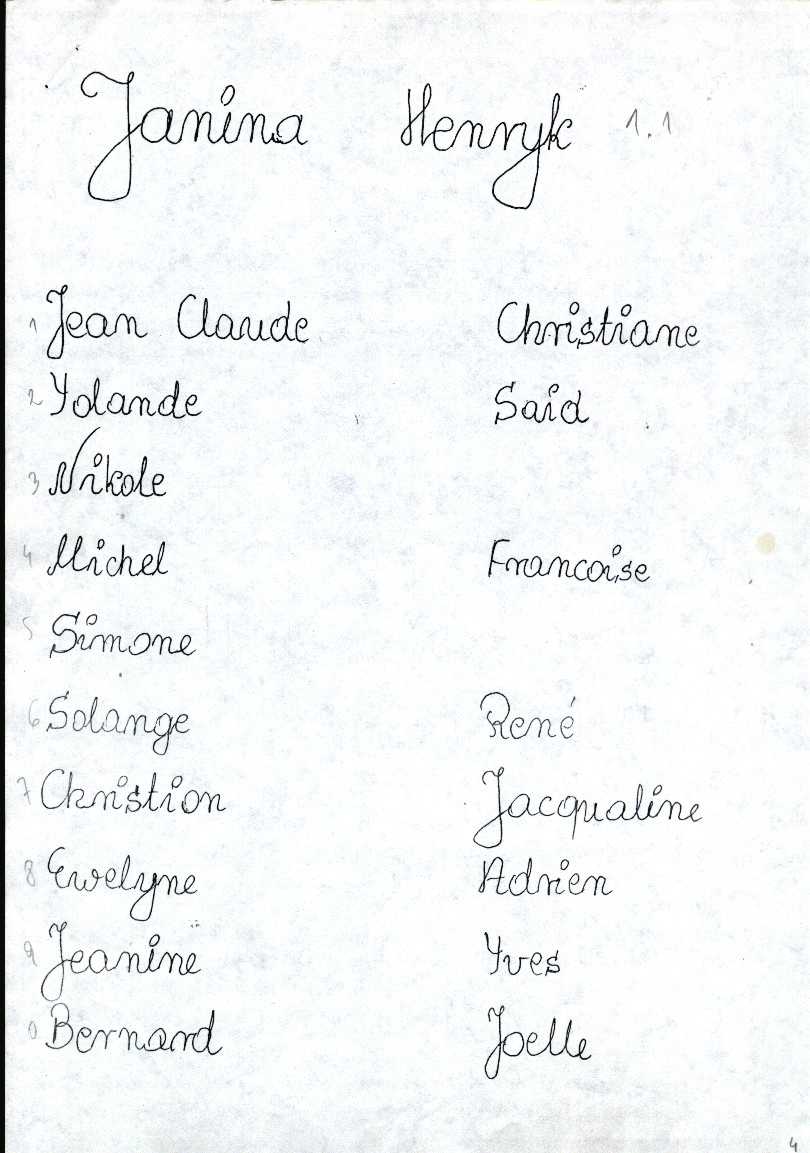 Janina Henryk 1.1
1 Jean Claude Christiane
2 Yolande Said
3 Nikole
4 Michel Francoise
5 Simone
6 Solange René
7 Christion Jacqualine
8 Ewelyne Adrien
9 Jeanine Yves
0 Bernard Joelle
4